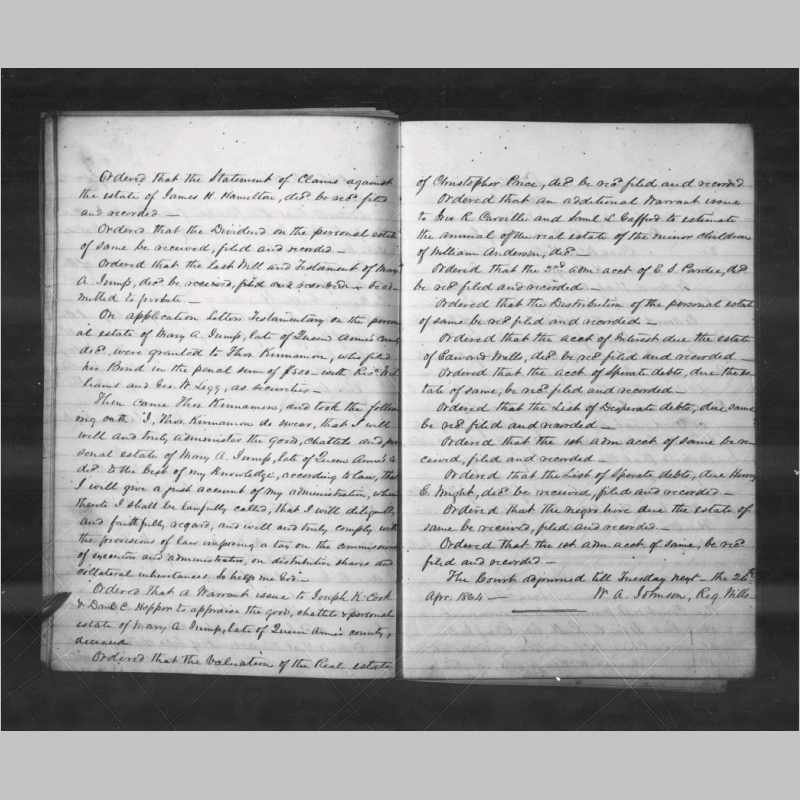 Ordered that the Statement of Claims against
the estate of James H. Hamilton, decd be recd filed
and recorded —
Ordered that the Dividend on the personal estate
of same be received, filed and recorded —
Ordered that the Last Will and Testament of Mary
A Jump, decd be received, filed and recorded & be ad-
mitted to probate. —
On application Letters Testamentary on the person
al estate of Mary A. Jump, late of Queen Anne's County
decd were granted to Thos Kinnamon, who filed
his Bond in the penal sum of with Wil
liams and Geo. W. Legg, as securities —
Then came Thos Kinnamon, and took the follow
ing oath I, Thos Kinnamon do swear, that I will
well and truly administer the good, chattels and per
sonal estate of Mary A. Jump, late of Queen Anne's Co
decd to the best of my knowledge, according to law, that
I will give a just account of my administration, when
thereto I shall be lawfully called, that I will diligently
and faithfully, regard, and will and truly comply with
the provisions of law imposing a tax on the commissions
of executors and administrators, on distributive shares and
collateral inheritances So help me God —
Ordered that a Warrant issue to Joseph K. Cook
& Danl C. Hopper to appraise the good, chattels & personal
estate of Mary A Jump, late of Queen Anne's county,
deceased
Ordered that the Valuation of the Real estate
of Christopher Price, decd be recd filed and recorded
Ordered that an additional Warrant issue
to Geo R. Carville and Saml L. Gafford to estimate
the annual of the real estate of the minor children
of William Anderson, decd —
Ordered that the 2nd adm. acct of E. S. Pardee, decd
be recd filed and recorded —
Ordered that the Distribution of the personal estate
of same be recd filed and recorded —
Ordered that the acct of Interest due the estate
of Edward Wells, decd be recd filed and recorded —
Ordered that the acct of Sperate debts, due the es-
tate of same, be recd filed and recorded —
Ordered that the List of Desperate debts, due same
be recd filed and recorded —
Ordered that the 1st adm acct of same be re
ceived, filed and recorded —
Ordered that the List of Sperate debts, due Henry
C. Wright, decd be received, filed and recorded —
Ordered that the negro hire due the estate of
same be received, filed and recorded —
Ordered that the 1st adm. acct of same, be recd
filed and recorded —
The Court adjourned till Tuesday next — the 26th
Apr. 1864 — W. A. Johnson, Reg. Wills